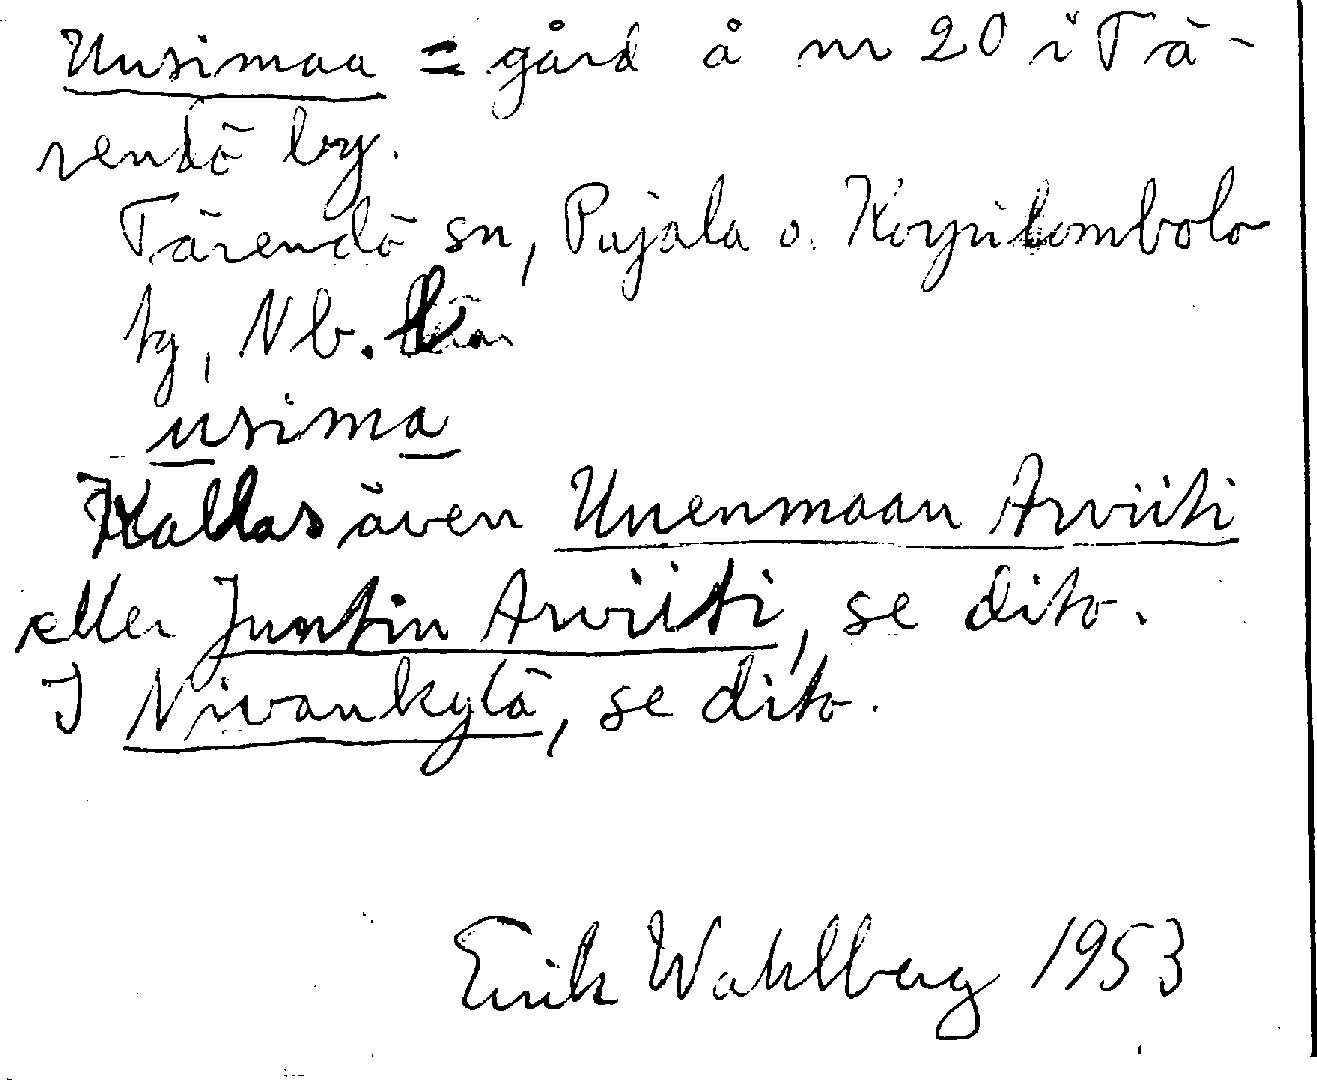 Uusimaa = gård å nr 20 i Tä-
rendö by.
Tärendö sn, Pajala o. Korpilombolo
tg, Nb. län
usima
Kallas även Uuenmaan Arviiti
eller Juntin Arviiti, se dito.
I Nivankylä, se dito.
Erik Wahlberg 1953